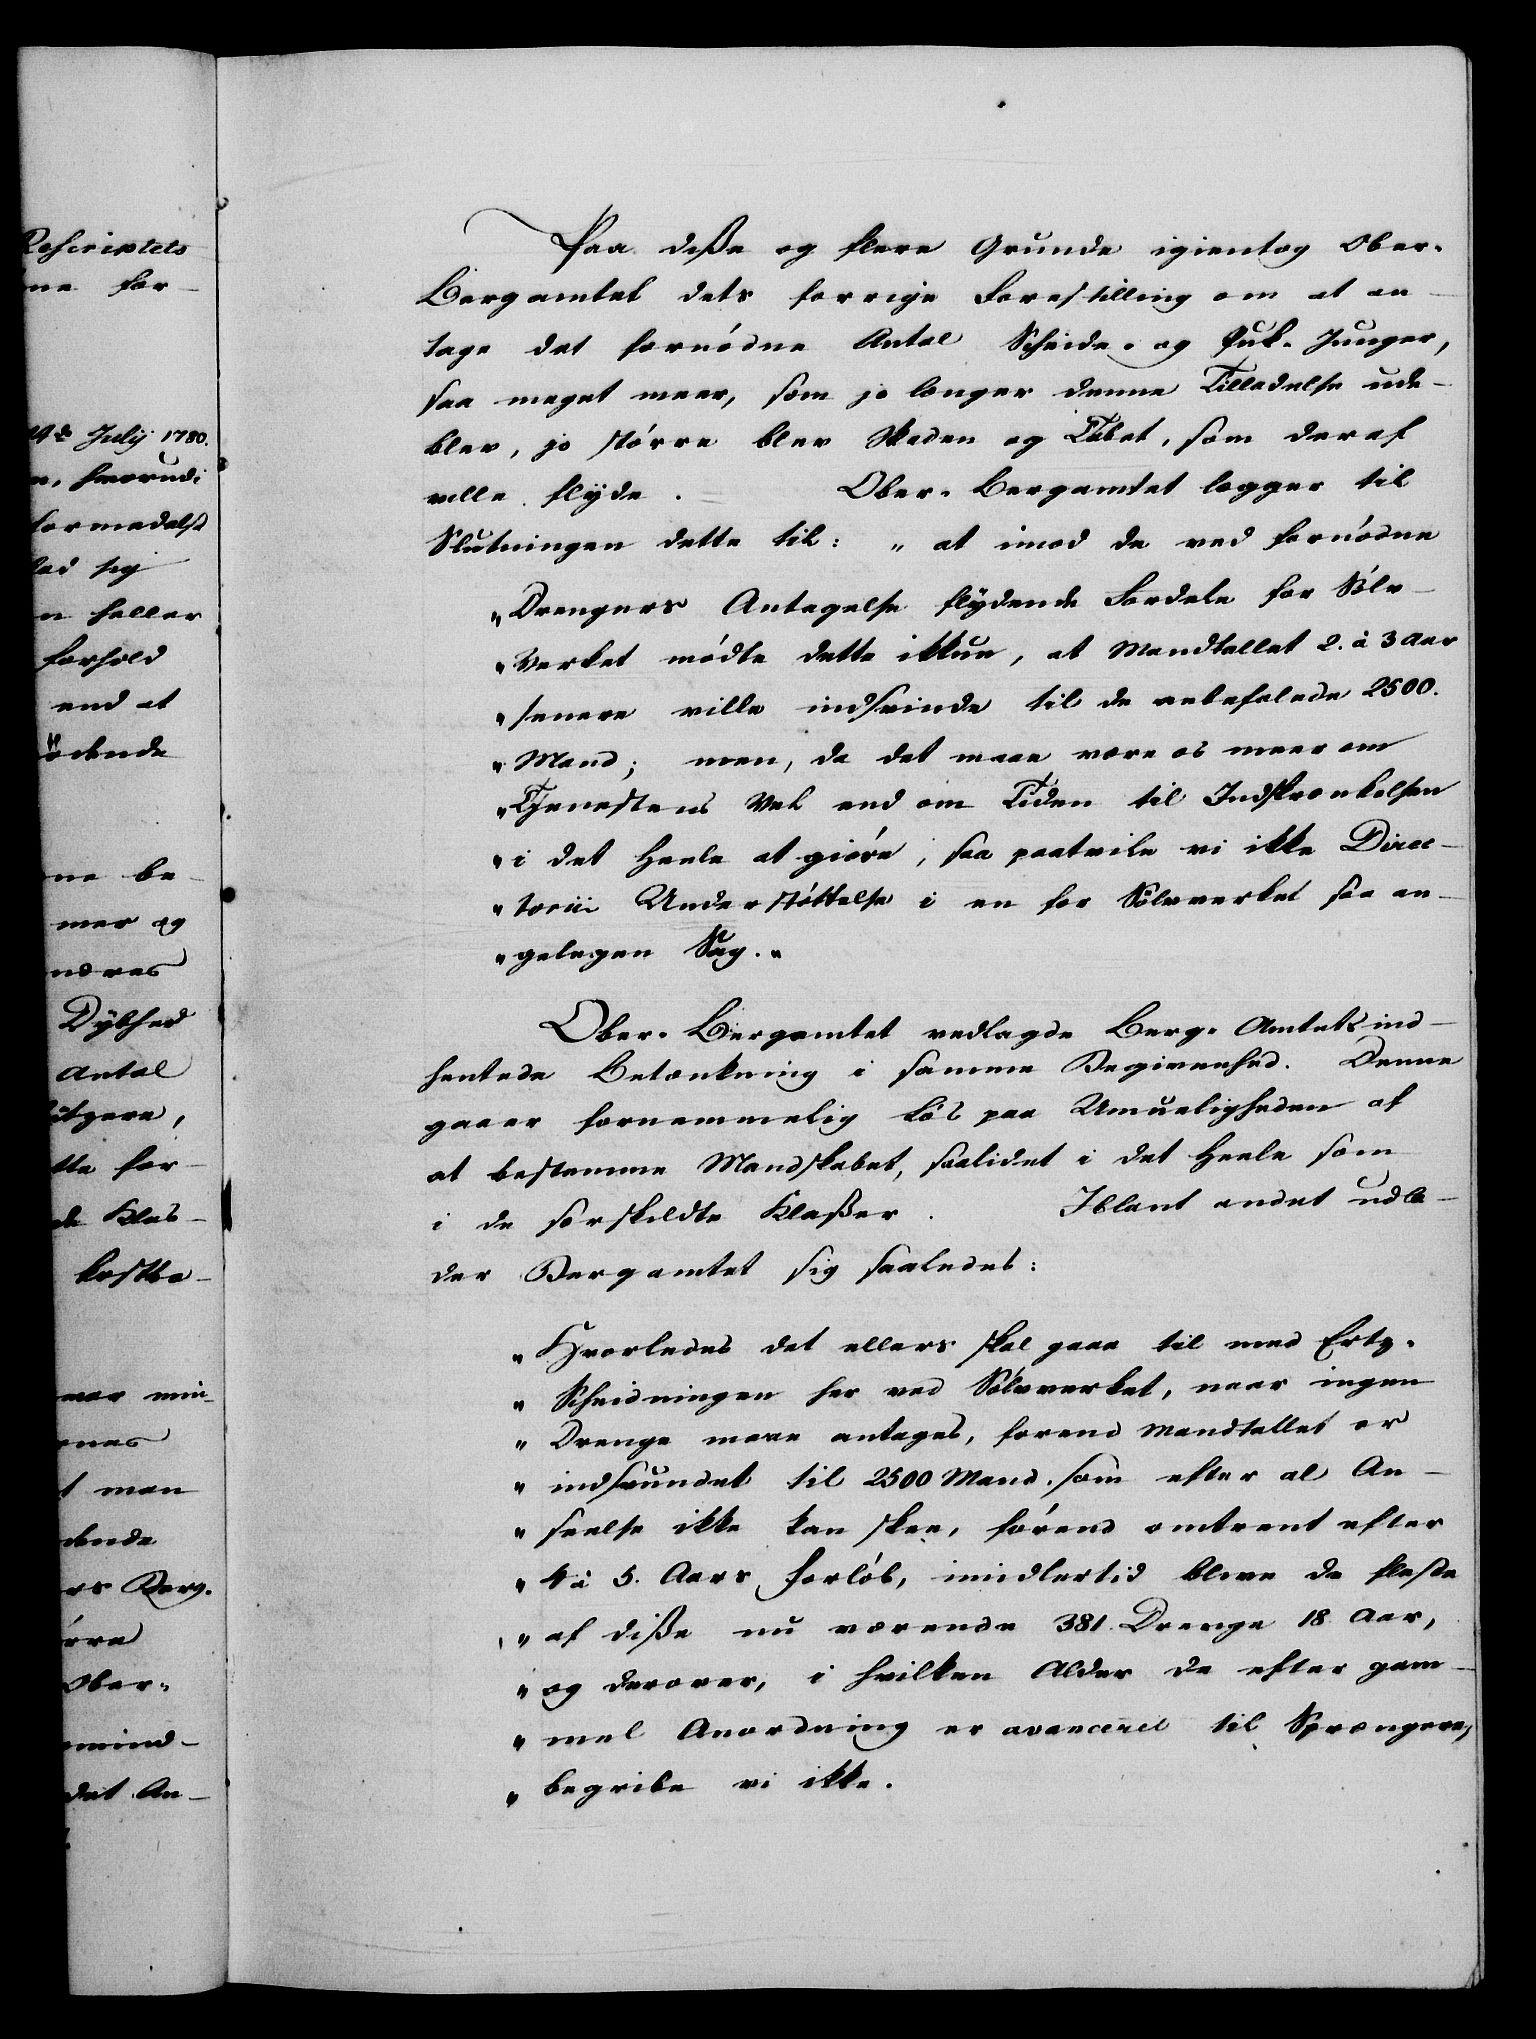 Rescriptets
ne for-
July 1780.
hvorudi
formedelst
sig
heller
Forhold
end at
be-
mer og
Dybhed
Antal
for-
Klas-
kostba-
min-
man
Berg-
Ober-
An-
Paa disse og flere Grunde igientog Ober-
Bergamtet dets forrige Forestilling om at an-
tage det fornödne Antal Scheide- og Puk-Junger,
saa meget meer, som jo længer denne Tilladelse ude-
blev, jo större blev Skaden og Tabet, som deraf
ville flyde. Ober-Bergamtet legger til
Slutningen dette til: „at imod de ved fornödne
„Drengers Antagelse flydende Fordele for Sölv-
„Verket mödte dette ikkun, at Mandtallet 2. à 3 Aar
„senere ville indsvinde til de anbefalede 2500.
„Mand; men, da det maae være os meer om
„Tjenestens Vel end om Tiden til Indskrænkelsen
„i det Heele at giöre, saa paatvile vi ikke Direc-
„torii Understöttelse i en for Sölvverket saa an-
„gelegen Sag.„
Ober-Bergamtet vedlagde Berg-Amtets ind-
hentede Betænkning i samme Begivenhed. Denne
gaaer fornemmelig lös paa Umueligheden af
at bestemme Mandskabet, saalidet i det Heele som
i de særskildte Klasser. Iblant andet udla-
der Bergamtet sig saaledes:
„Hvorledes det ellers skal gaae til med Ertz-
„Scheidningen her ved Sölvverket, naar ingen
„Drenge maae antages, forend Mandtallet er
„indsvundet til 2500 Mand, som efter al An-
„seelse ikke kan skee, förend omtrent efter
„4 à 5. Aars Forlöb, imidlertid blive de fleste
„af disse nu værende 381 Drenge 18 Aar,
„og derover, i hvilken Alder de efter gam-
„mel Anordning er avanceret til Sprængere,
„begribe vi ikke.